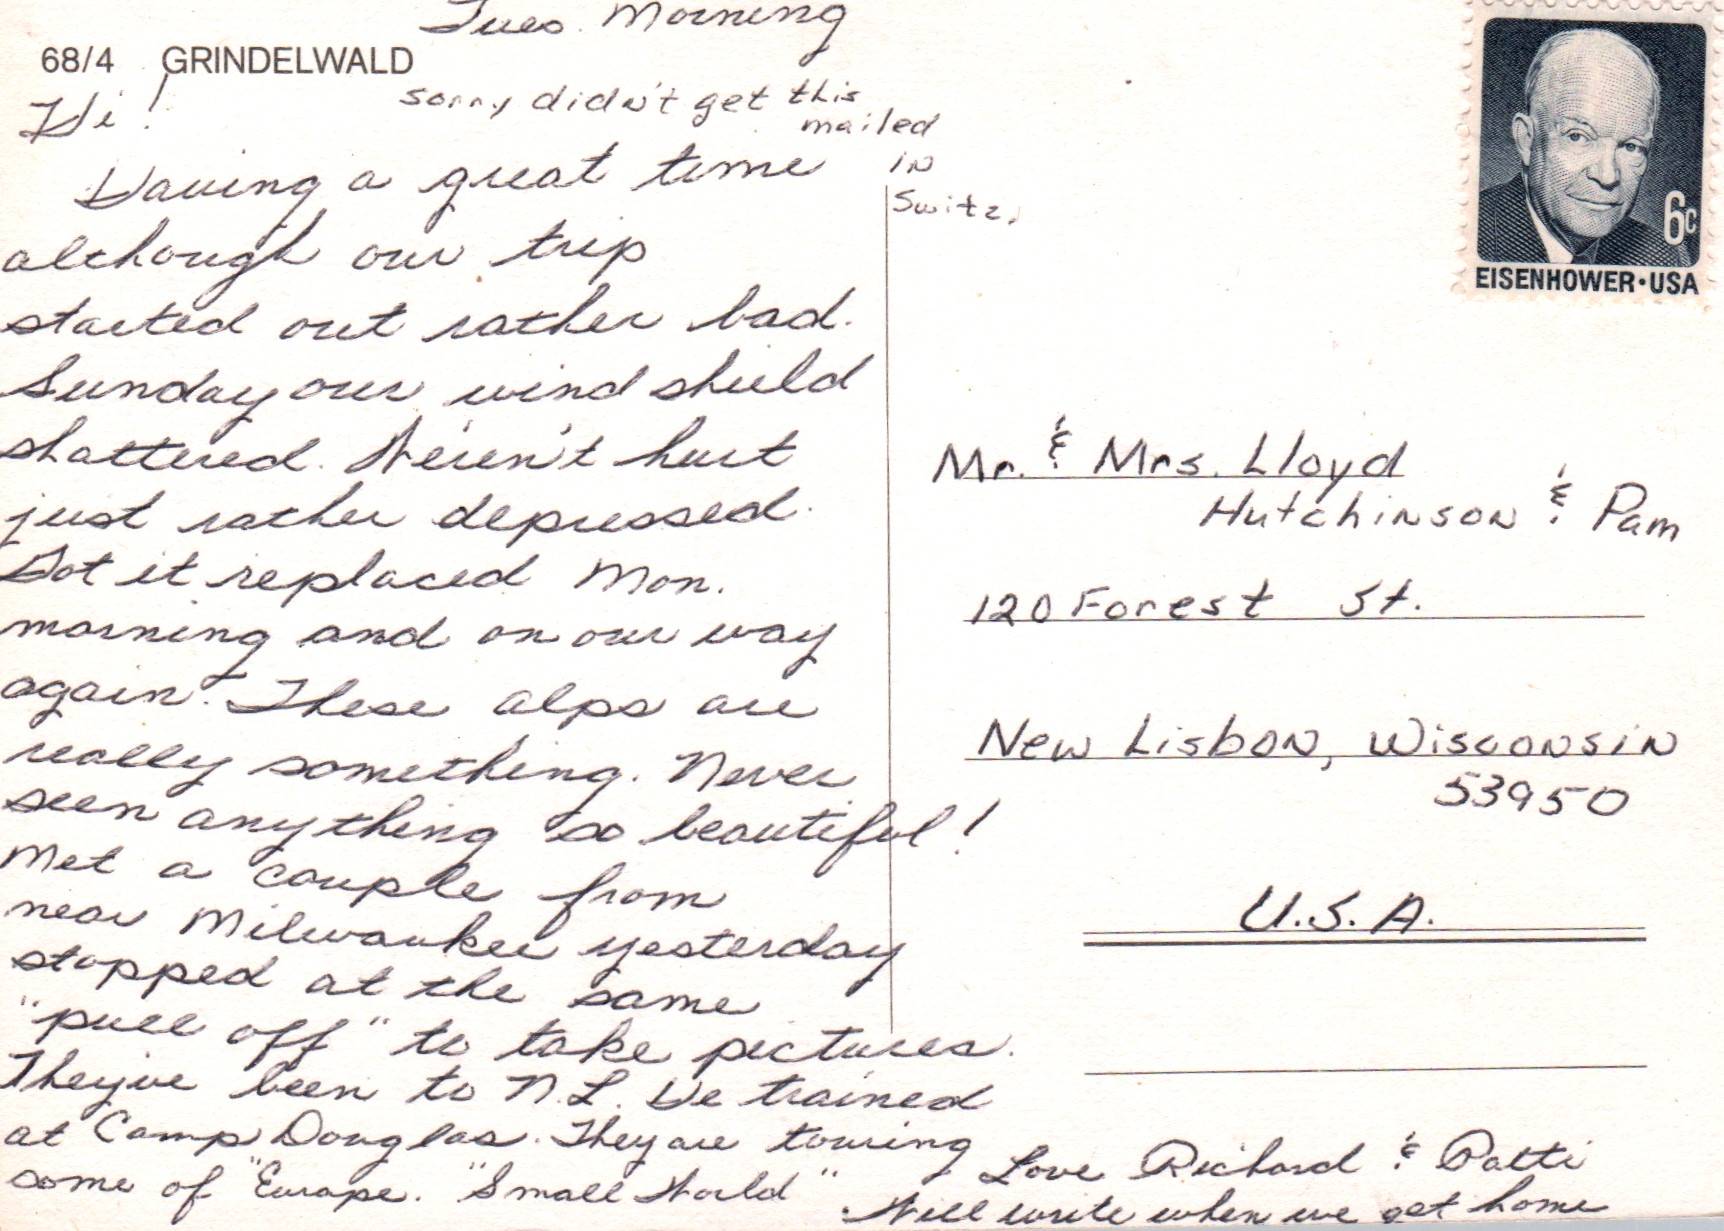 Tues. Morning
68/4 GRINDELWALD
Hi!
sorry didn't get this
mailed
in
Switz.
Having a great time
although our trip
started out rather bad.
Sunday our wind shield
shattered. Weren't hurt
just rather depressed.
Got it replaced Mon.
morning and on our way
again. These alps are
really something. Never
seen anything so beautiful!
Met a couple from
near Milwaukee yesterday
stopped at the same
"pull off" to take pictures.
They've been to N.L. He trained
at Camp Douglas. They are touring
some of Europe. "Small World"
Love Richard & Patti
Will write when we get home
6c
EISENHOWER·USA
Mr. & Mrs. Lloyd
Hutchinson & Pam
120 Forest St.
New Lisbon, Wisconsin
53950
U.S.A.